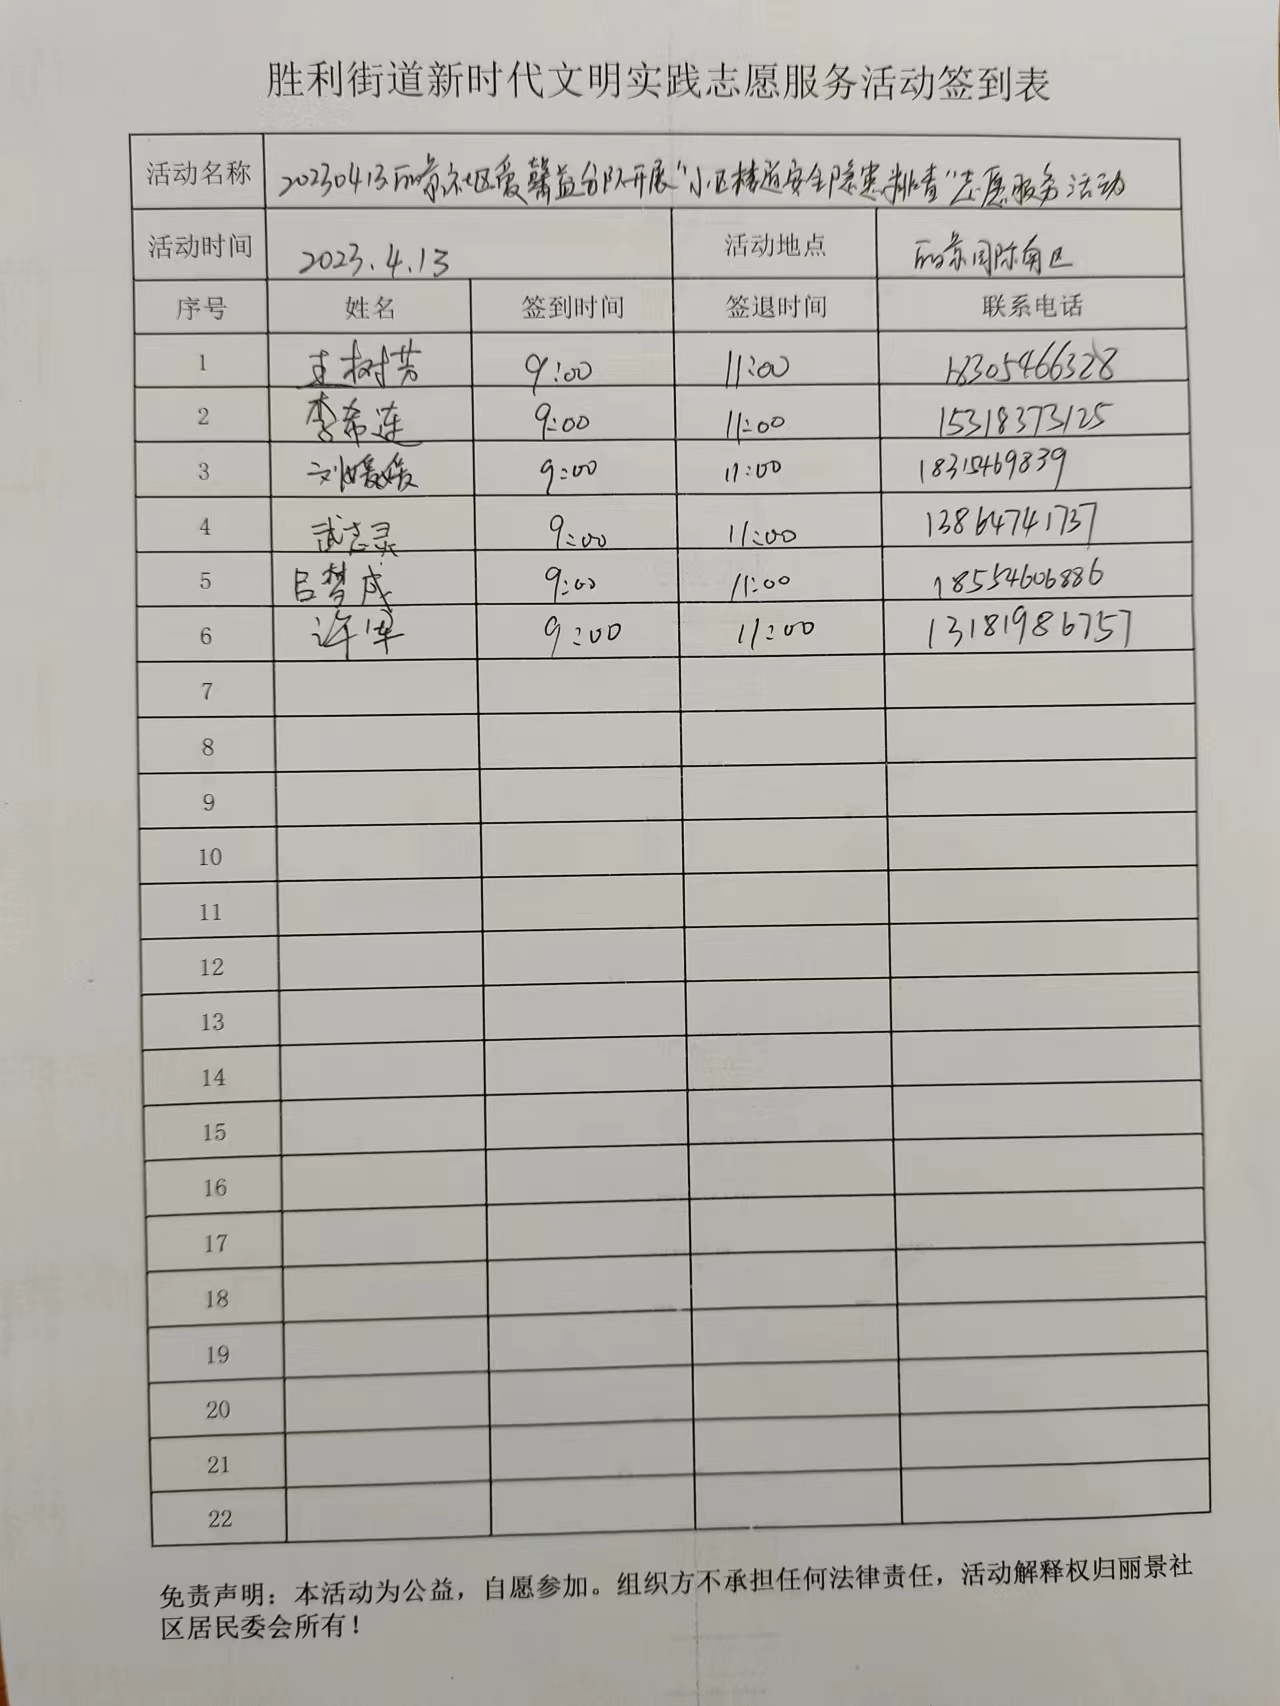 胜利街道新时代文明实践志愿服务活动签到表
活动名称 20230413丽景社区爱馨益分队开展“小区楼道安全隐患排查”志愿服务活动
活动时间 2023.4.13 活动地点 丽景国际南区
序号 姓名 签到时间 签退时间 联系电话
1 王树芳 9:00 11:00 18305466328
2 李希连 9:00 11:00 15318373125
3 刘媛媛 9:00 11:00 18315469839
4 武志灵 9:00 11:00 13864741737
5 吕梦成 9:00 11:00 18554606886
6 许军 9:00 11:00 13181986757
7
8
9
10
11
12
13
14
15
16
17
18
19
20
21
22
免责声明：本活动为公益，自愿参加。组织方不承担任何法律责任，活动解释权归丽景社
区居民委会所有！